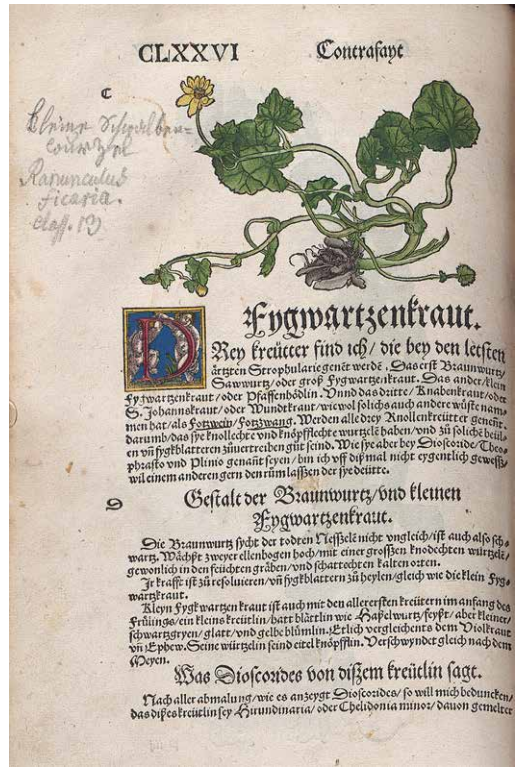 CLXXVI Contrafayt
C
Kleine Schwalben=
wurzel
Ranunculus
ficaria.
Class. 13
Fygwartzenkraut.
DRey kreütter find ich / die bey den letsten
ärtzten Strophularie genẽt werdẽ. Das erst Braunwurtz/
Sawwurtz/oder groß Fygwartzenkraut. Das ander/klein
Fygwartzenkraut/oder Pfaffenhödlin. Vnnd das dritte/Knabenkraut/oder
S. Johannskraut/oder Wundtkraut/wie wol solichs auch andere wüste nam=
men hat/als Fotzwein/Fotzwang. Werden alle drey Knollenkreütter genẽt.
darumb/das sye knollechte vnd knöpfflechte wurtzelẽ haben/vnd zů solichẽ beül=
en vñ fygkblatteren zůuertreiben gůt seind. Wie sye aber bey Dioscoride/Theo=
phrasto vnd Plinio genañt seyen/bin ich vff diß mal nicht eygentlich gewessz/
wil einem anderen gern den rům lasszen der sye deütte.
D
Gestalt der Braunwurtz/vnd kleinen
Fygwartzenkraut.
Die Braunwurtz sycht der todten NessZelẽ nicht vngleich/ist auch also sch=
wartz. Wächßt zweyer ellenbogen hoch/mit einer grosszen knodechten würtzelẽ/
gewonlich in den feüchten gräben/vnd schattechten kalten orten.
Jr krafft ist zů resoluieren/vñ fygkblattern zů heylen/gleich wie die klein Fyg=
wartzkraut.
Kleyn Fygkwartzen kraut ist auch mit den allerersten kreütern im anfang des
Früling s/ein kleins kreütlin/hatt blättlin wie Haßelwurtz/feyßt/aber kleiner/
schwartzgryen/glatt/vnd gelbe blümlin. Etlich vergleichents dem Violkraut
vñ Ephew. Seine würtzelin seind eitel knöpfflin. Verschwyndet gleich nach dem
Meyen.
Was Dioscorides von dißem kreütlin sagt.
Nach aller abmalung/wie es anzeygt Dioscorides/so will mich beduncken/
das dißes kreütlin sey Hirundinaria/oder Chelidonia minor/dauon gemelter